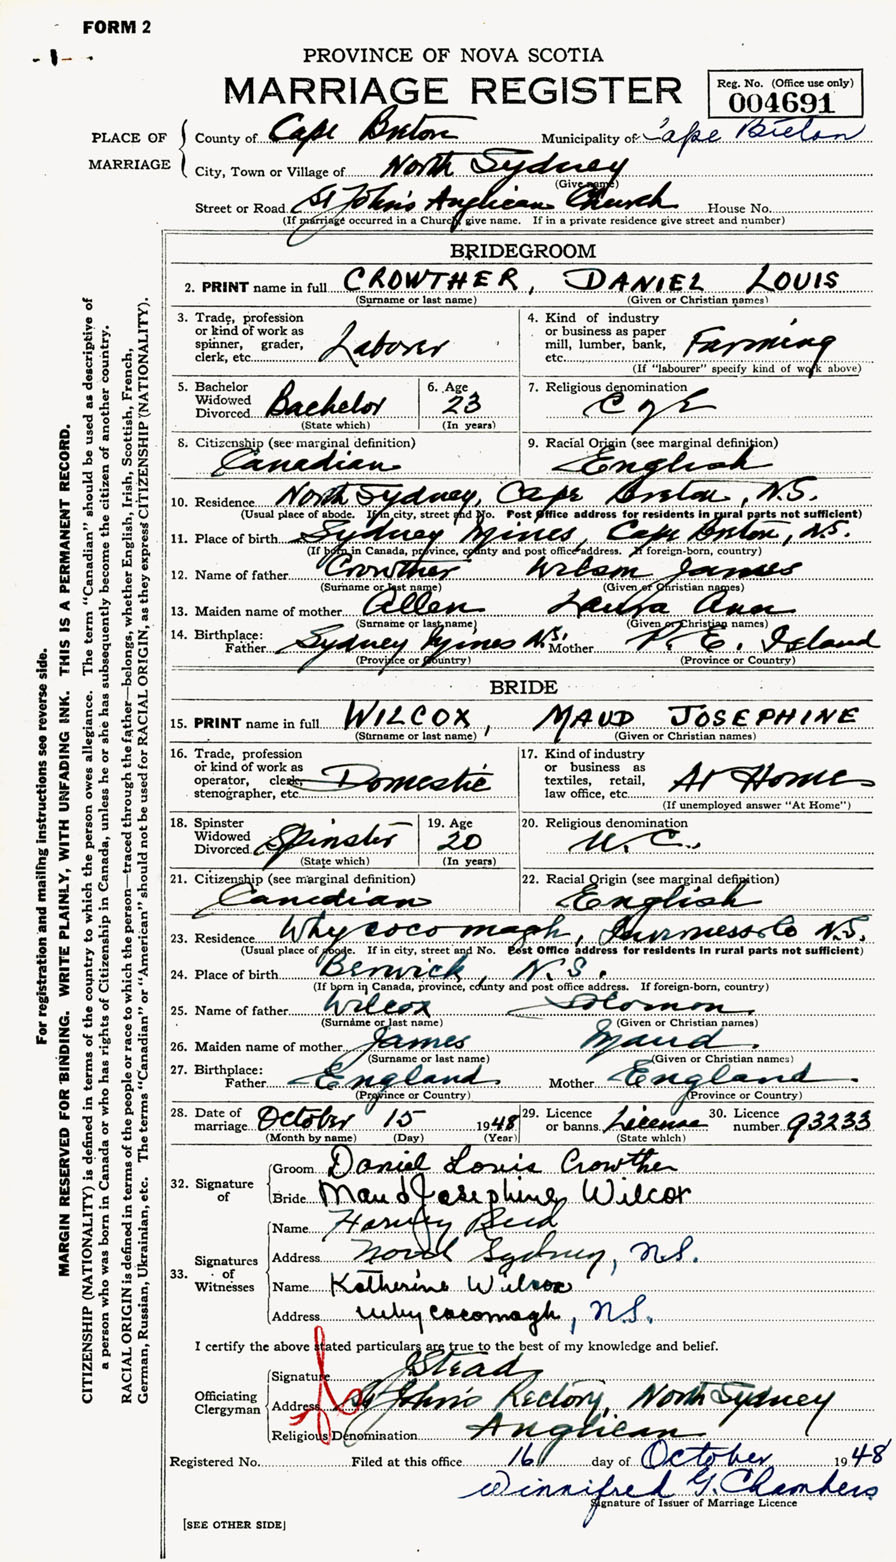 FORM 2
PROVINCE OF NOVA SCOTIA
MARRIAGE REGISTER
Reg. No. (Office use only)
004691
PLACE OF MARRIAGE
County of Cape Breton Municipality of Cape Breton
City, Town or Village of North Sydney
(Give name)
Street or Road St John's Anglican Church House No.
(If marriage occurred in a Church give name. If in a private residence give street and number)
BRIDEGROOM
2. PRINT name in full CROWTHER, DANIEL LOUIS
(Surname or last name) (Given or Christian names)
3. Trade, profession or kind of work as spinner, grader, clerk, etc. Laborer
4. Kind of industry or business as paper mill, lumber, bank, etc. Farming
(If "labourer" specify kind of work above)
5. Bachelor Widowed Divorced Bachelor
(State which)
6. Age 23
(In years)
7. Religious denomination C of E
8. Citizenship (see marginal definition) Canadian
9. Racial Origin (see marginal definition) English
10. Residence North Sydney, Cape Breton, N.S.
(Usual place of abode. If in city, street and No. Post Office address for residents in rural parts not sufficient)
11. Place of birth Sydney Mines, Cape Breton, N.S.
(If born in Canada, province, county and post office address. If foreign-born, country)
12. Name of father Crowther Wilson James
(Surname or last name) (Given or Christian names)
13. Maiden name of mother Allen Laura Ann
(Surname or last name) (Given or Christian names)
14. Birthplace: Father Sydney Mines N.S. Mother P. E. Island
(Province or Country) (Province or Country)
BRIDE
15. PRINT name in full WILCOX, MAUD JOSEPHINE
(Surname or last name) (Given or Christian names)
16. Trade, profession or kind of work as operator, clerk, stenographer, etc. Domestic
17. Kind of industry or business as textiles, retail, law office, etc. At Home
(If unemployed answer "At Home")
18. Spinster Widowed Divorced Spinster
(State which)
19. Age 20
(In years)
20. Religious denomination U.C.
21. Citizenship (see marginal definition) Canadian
22. Racial Origin (see marginal definition) English
23. Residence Whycocomagh, Inverness Co N.S.
(Usual place of abode. If in city, street and No. Post Office address for residents in rural parts not sufficient)
24. Place of birth Berwick, N.S.
(If born in Canada, province, county and post office address. If foreign-born, country)
25. Name of father Wilcox Solomon
(Surname or last name) (Given or Christian names)
26. Maiden name of mother James Maud.
(Surname or last name) (Given or Christian names)
27. Birthplace: Father England Mother England.
(Province or Country) (Province or Country)
28. Date of marriage October 15 1948
(Month by name) (Day) (Year)
29. Licence or banns. License
(State which)
30. Licence number. 93233
32. Signature of
Groom Daniel Louis Crowther
Bride Maud Josephine Wilcox
33. Signatures of Witnesses
Name Harvey
Address Sydney, N.S.
Name Katherine Wilcox
Address Whycocomagh, N.S.
I certify the above stated particulars are true to the best of my knowledge and belief.
Officiating Clergyman
Signature Stead
Address St John's Rectory, North Sydney
Religious Denomination Anglican
Registered No. Filed at this office 16 day of October 1948
Winnifred G. Chambers
Signature of Issuer of Marriage Licence
[SEE OTHER SIDE]
For registration and mailing instructions see reverse side.
MARGIN RESERVED FOR BINDING. WRITE PLAINLY, WITH UNFADING INK. THIS IS A PERMANENT RECORD.
CITIZENSHIP (NATIONALITY) is defined in terms of the country to which the person owes allegiance. The term "Canadian" should be used as descriptive of
a person who was born in Canada or who has rights of Citizenship in Canada, unless he or she has subsequently become the citizen of another country.
RACIAL ORIGIN is defined in terms of the people or race to which the person—traced through the father—belongs, whether English, Irish, Scottish, French,
German, Russian, Ukrainian, etc. The terms "Canadian" or "American" should not be used for RACIAL ORIGIN, as they express CITIZENSHIP (NATIONALITY).